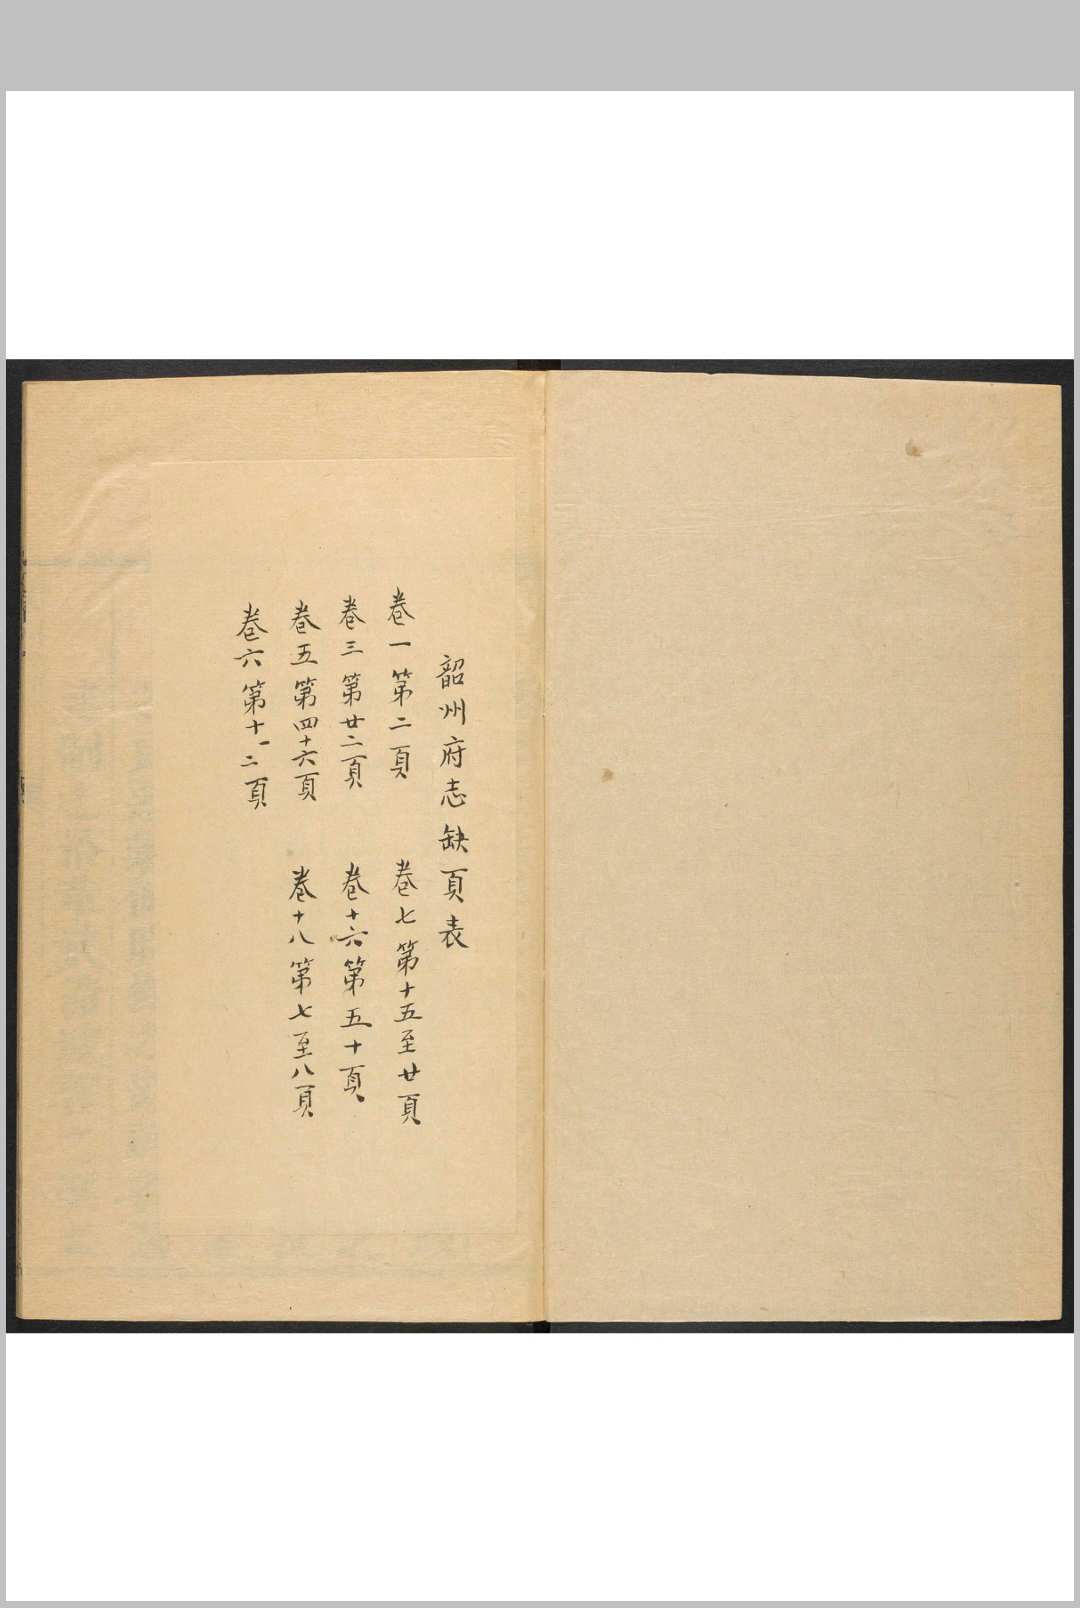 韶州府志缺頁表
卷一 第二頁
卷三 第廿二頁
卷五 第四十六頁
卷六 第十一二頁
卷七 第十五至廿頁
卷十六 第五十頁
卷十八 第七至八頁